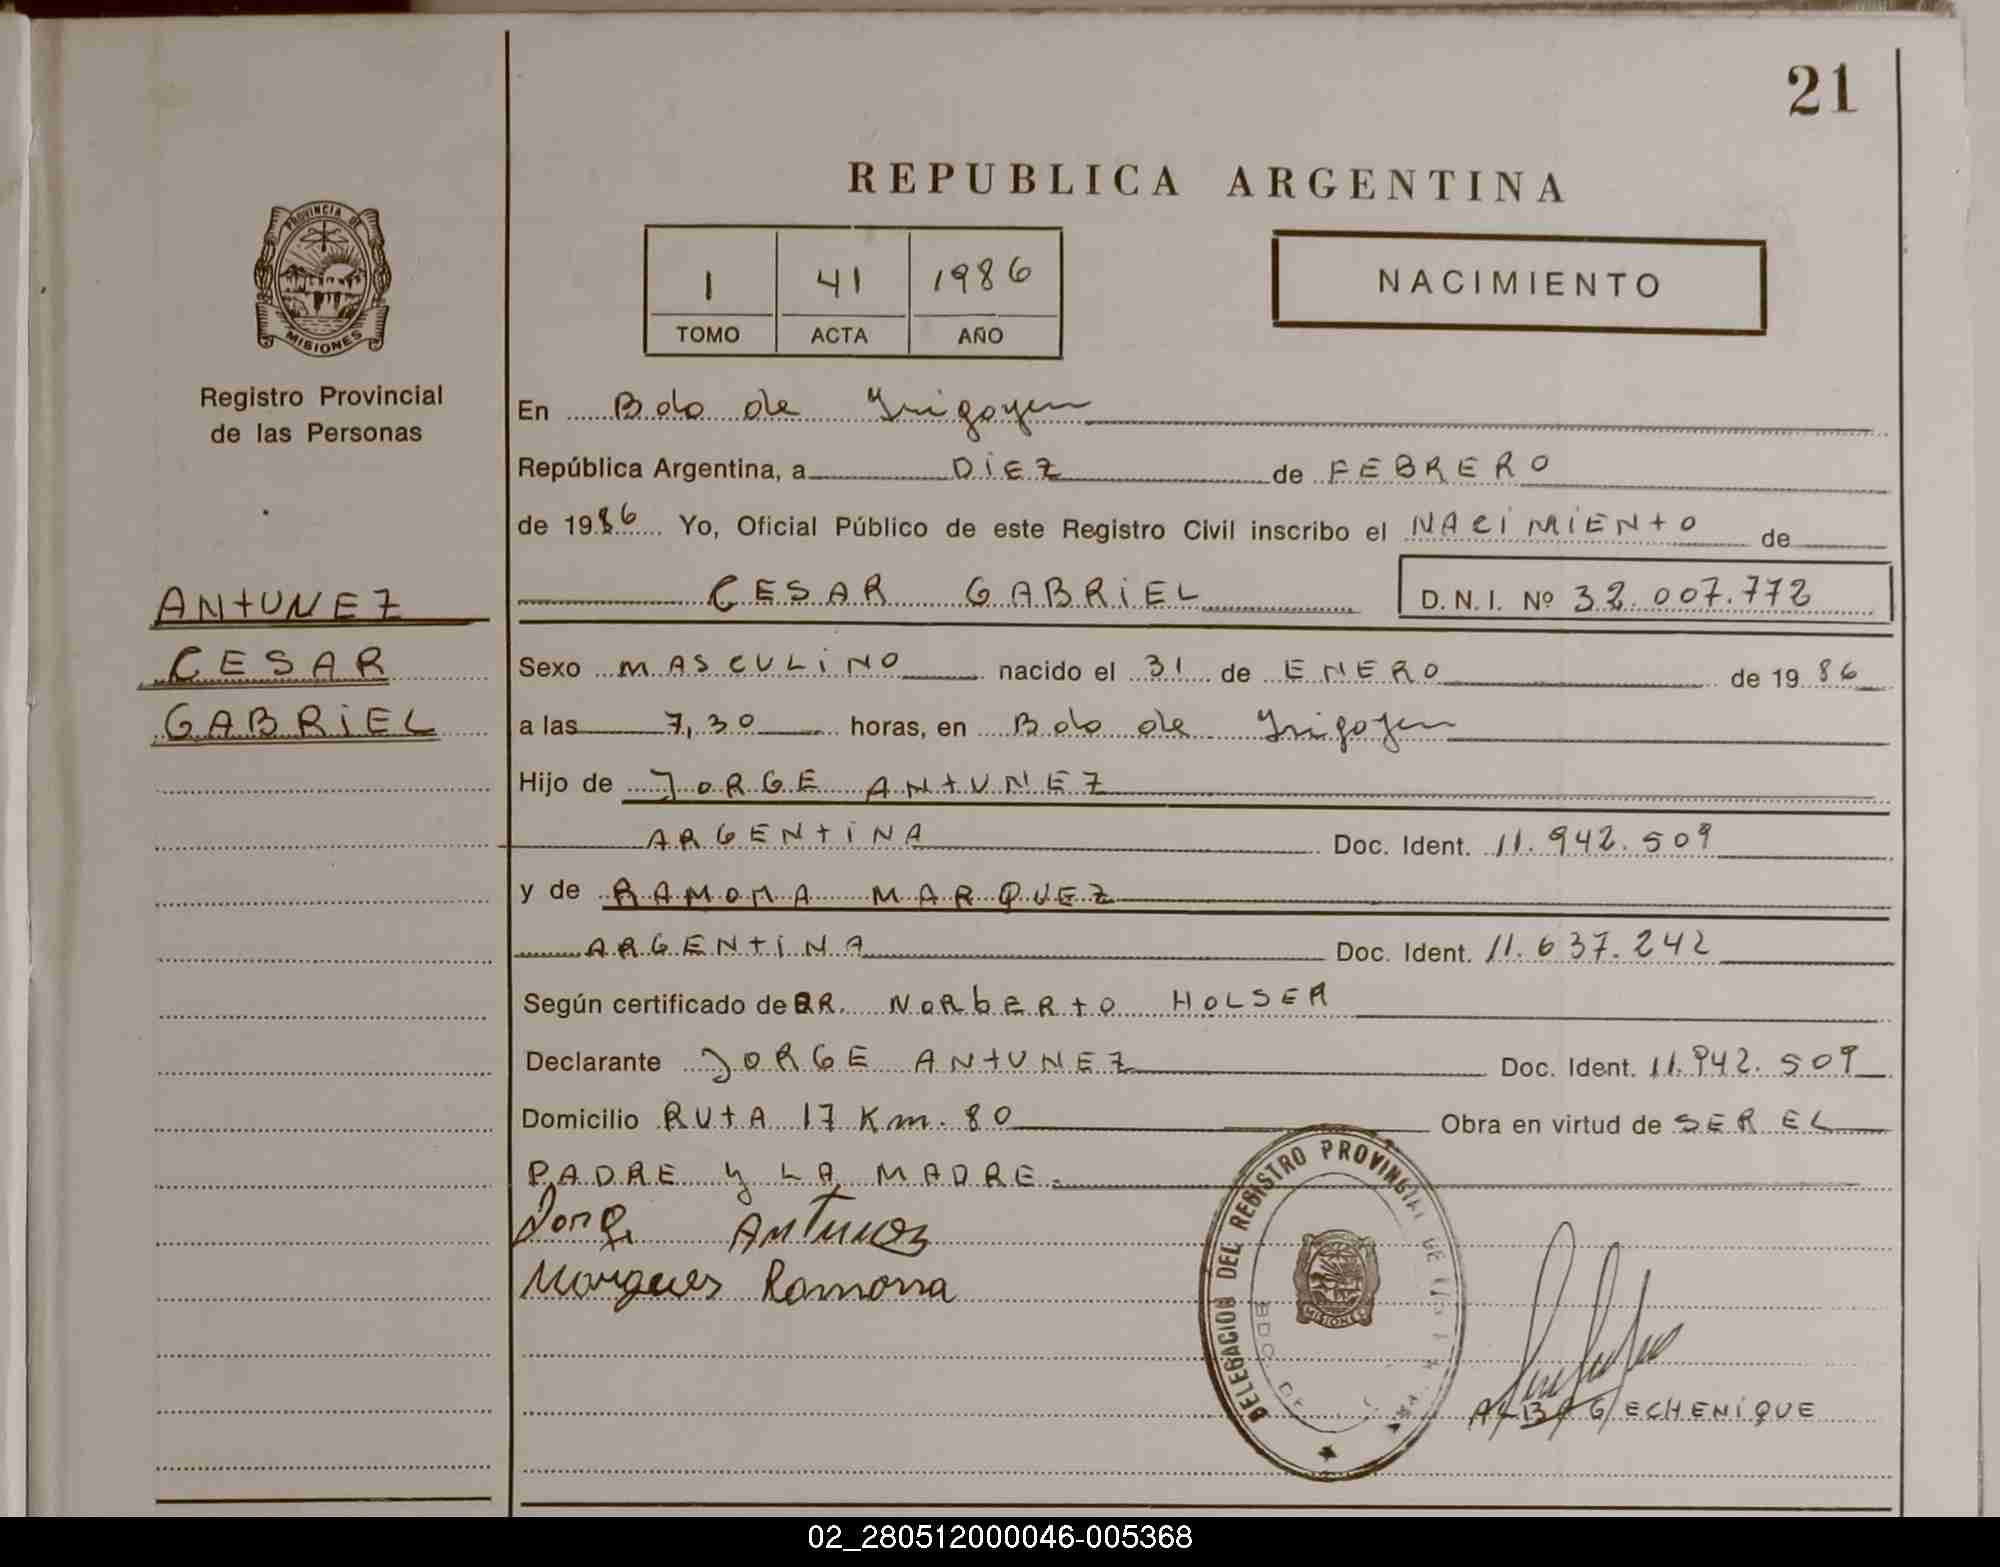 21
REPUBLICA ARGENTINA
PROVINCIA DE
MISIONES
1 41 1986
TOMO ACTA AÑO
NACIMIENTO
Registro Provincial
de las Personas
ANTUNEZ
CESAR
GABRIEL
En Bdo de Yrigoyen
República Argentina, a DIEZ de FEBRERO
de 1986 Yo, Oficial Público de este Registro Civil inscribo el NACIMIENTO de
CESAR GABRIEL D.N.I. Nº 32.007.772
Sexo MASCULINO nacido el 31 de ENERO de 1986
a las 7,30 horas, en Bdo de Yrigoyen
Hijo de JORGE ANTUNEZ
ARGENTINA Doc. Ident. 11.942.509
y de RAMONA MARQUEZ
ARGENTINA Doc. Ident. 11.637.242
Según certificado de DR. NORBERTO HOLSER
Declarante JORGE ANTUNEZ Doc. Ident. 11.942.509
Domicilio RUTA 17 Km. 80 Obra en virtud de SER EL
PADRE y LA MADRE.
Jorge Antunez
Marques Ramona
DELEGACION DEL REGISTRO PROVINCIAL DE
BDO DE
MISIONES
ALBA G ECHENIQUE
02_280512000046-005368